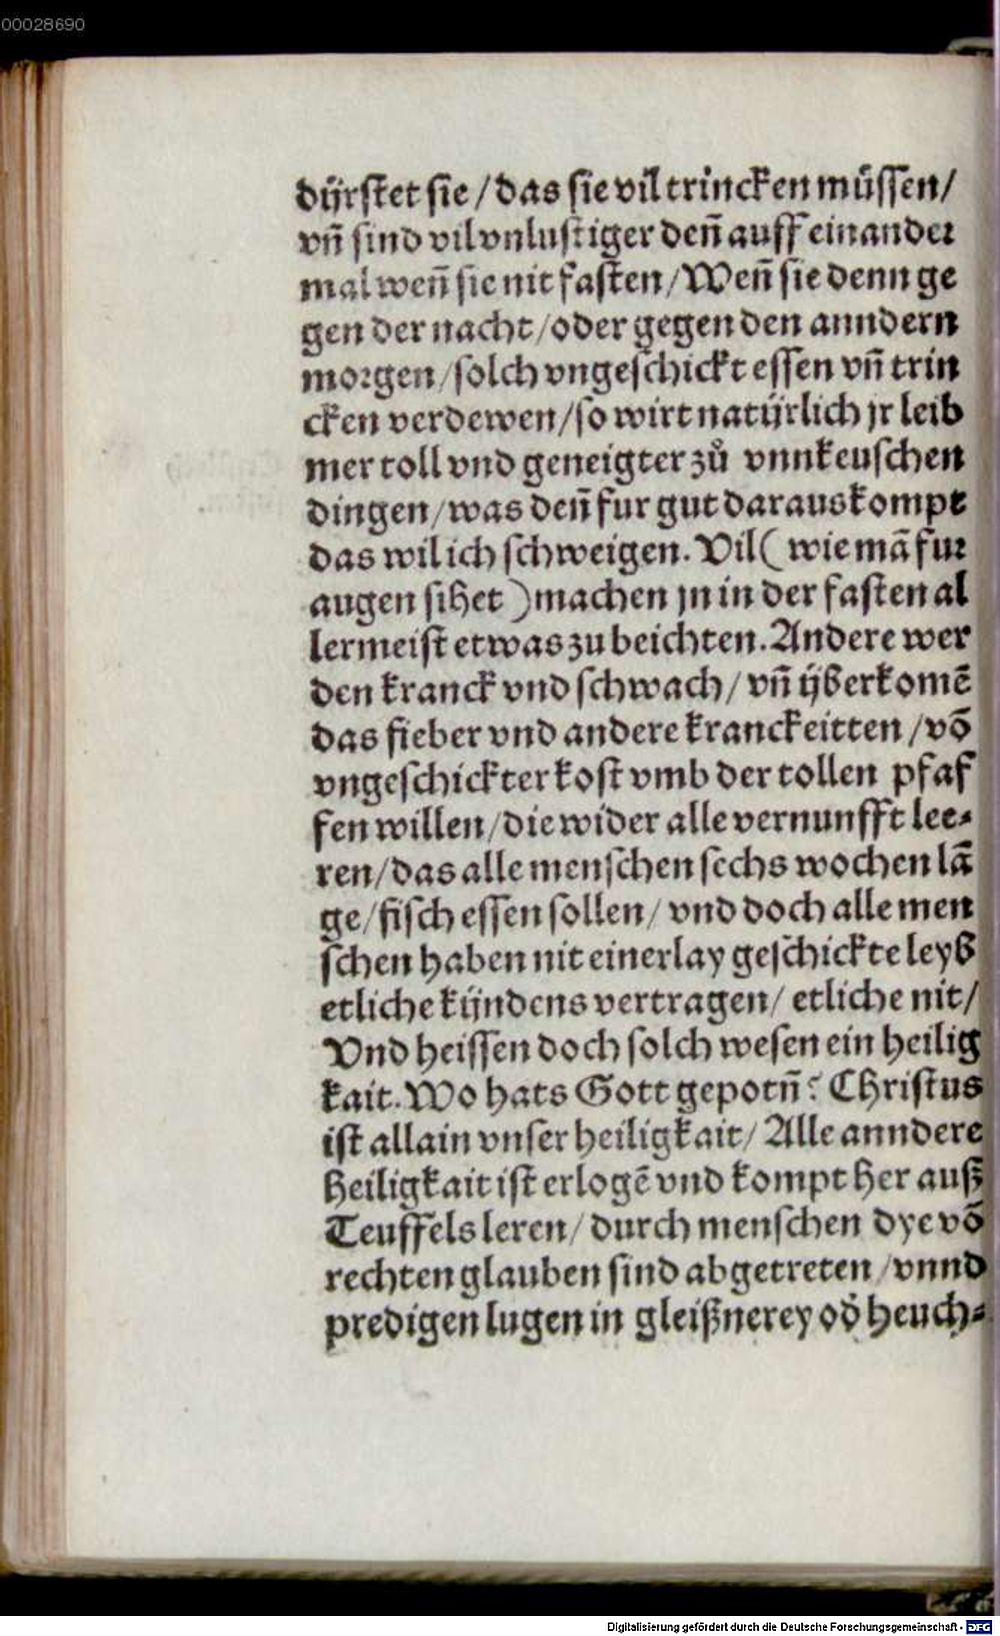 00028690
dÿrſtet ſie / das ſie vil trincken müſſen /
vn̄ ſind vil vnluſtiger den̄ auff ein ander
mal wen̄ ſie nit faſten / Wen̄ ſie denn ge
gen der nacht / oder gegen den anndern
morgen / ſolch vngeſchickt eſſen vn̄ trin
cken verdewen / ſo wirt natÿrlich jr leib
mer toll vnd geneigter zů vnnkeuſchen
dingen / was den̄ fur gut daraus kompt
das wil ich ſchweigen. Vil ( wie mā fur
augen ſihet ) machen jn in der faſten al
lermeiſt etwas zu beichten. Andere wer
den kranck vnd ſchwach / vn̄ ÿberkomē
das fieber vnd andere kranckeitten / vō
vngeſchickter koſt vmb der tollen pfaf
fen willen / die wider alle vernunfft lee⸗
ren / das alle menſchen ſechs wochen lā
ge / fiſch eſſen ſollen / vnd doch alle men
ſchen haben nit einerlay geſchickte leyb
etliche kÿndens vertragen / etliche nit /
Vnd heiſſen doch ſolch weſen ein heilig
kait. Wo hats Gott gepotn̄? Chriſtus
iſt allain vnſer heiligkait / Alle anndere
heiligkait iſt erlogē vnd kompt her auß
Teuffels leren / durch menſchen dye vō
rechten glauben ſind abgetreten / vnnd
predigen lugen in gleißnerey od̕ heuch⸗
Digitalisierung gefördert durch die Deutsche Forschungsgemeinschaft - DFG